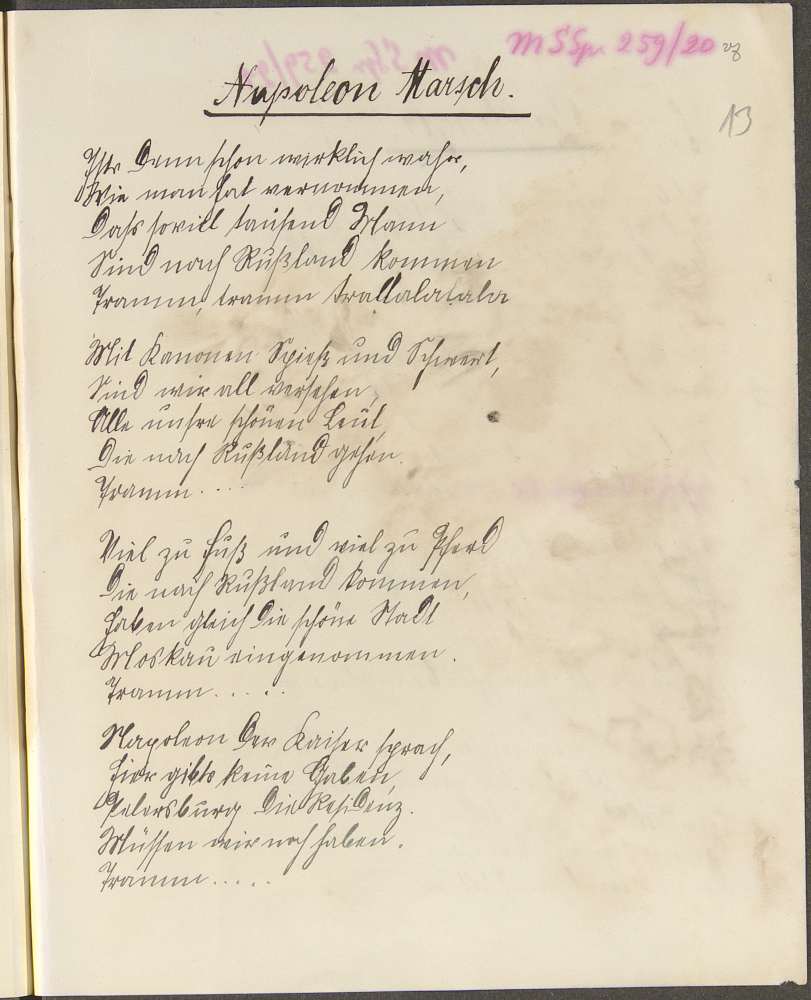 MSSpr 259/20
13
Napoleon Marsch.
Ists denn schon wirklich wahr,
Wie man hat vernommen,
Dass soviel tausend Mann
Sind nach Rußland kommen
Tramm, tramm trallalalala
Mit Kanonen Spieß und Schwert,
Sind wir all versehen,
Alle unsre schönen Leut,
Die nach Rußland gehen.
Tramm....
Viel zu Fuß und viel zu Pferd
Die nach Rußland kommen,
Haben gleich die schöne Stadt
Moskau eingenommen.
Tramm.....
Napoleon der Kaiser sprach,
Hier gibts keine Gaben,
Petersburg die Residenz.
Müssen wir noch haben.
Tramm.....